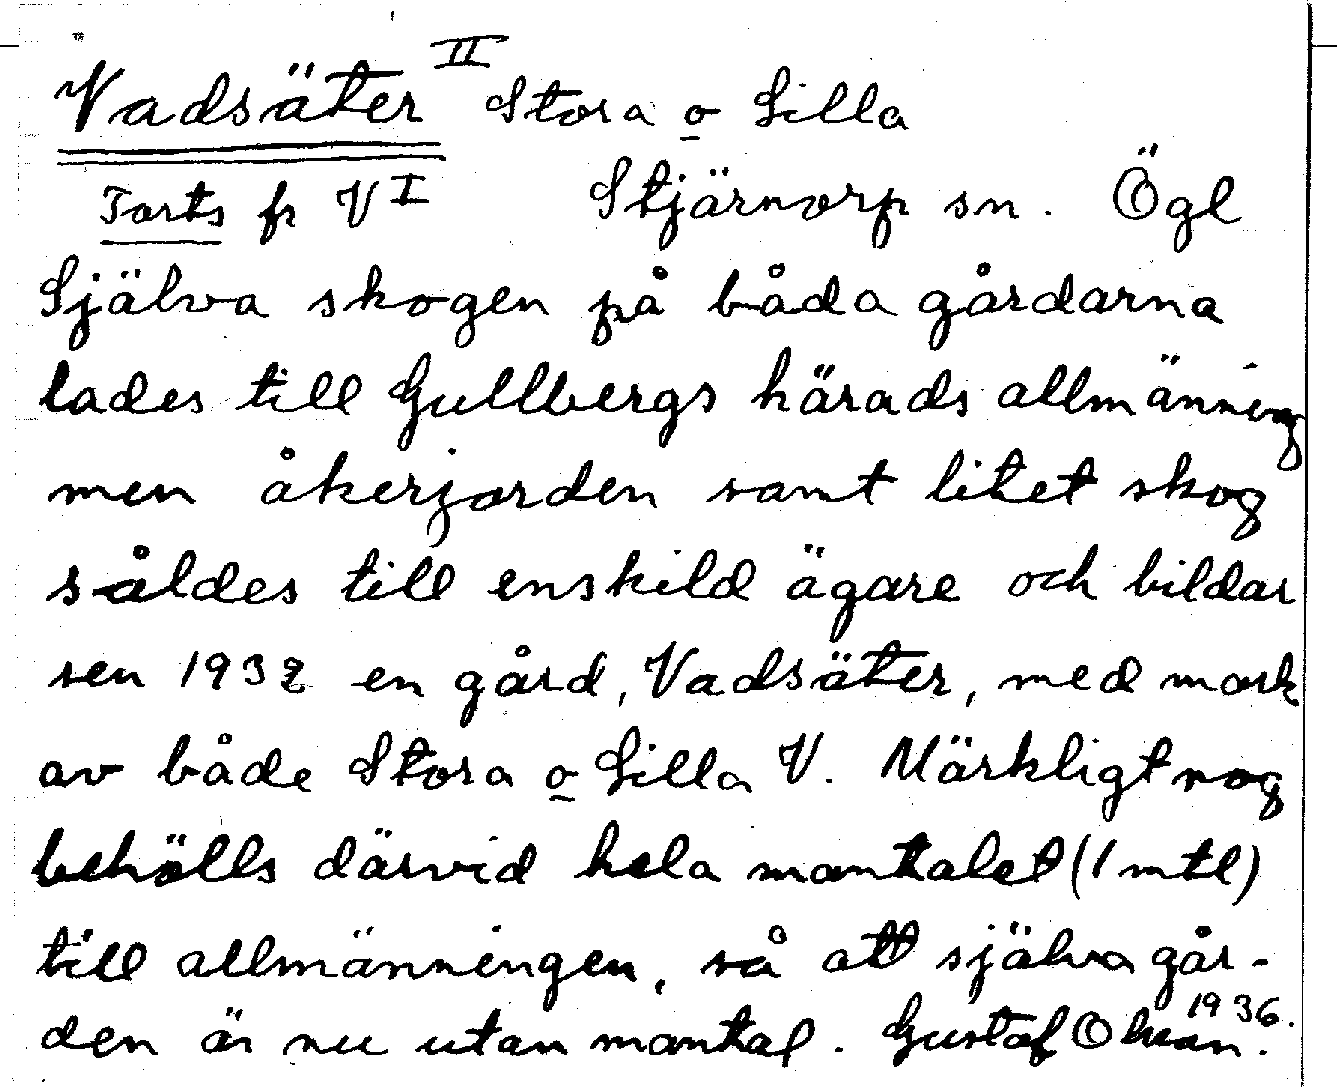 Vadsäter II Stora o Lilla
Forts fr V I Stjärnorp sn. Ögl
Själva skogen på båda gårdarna
lades till Gullbergs härads allmänning
men åkerjorden samt litet skog
såldes till enskild ägare och bildar
sen 1932 en gård, Vadsäter, med mark
av både Stora o Lilla V. Märkligt nog
behölls därvid hela mantalet (1 mtl)
till allmänningen, så att själva går-
den är nu utan mantal. Gustaf 1936.